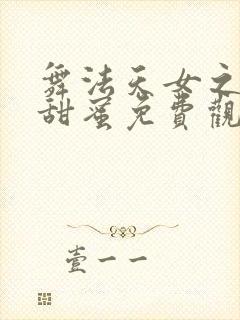 舞法天女之
甜蜜免費觀
壹一一